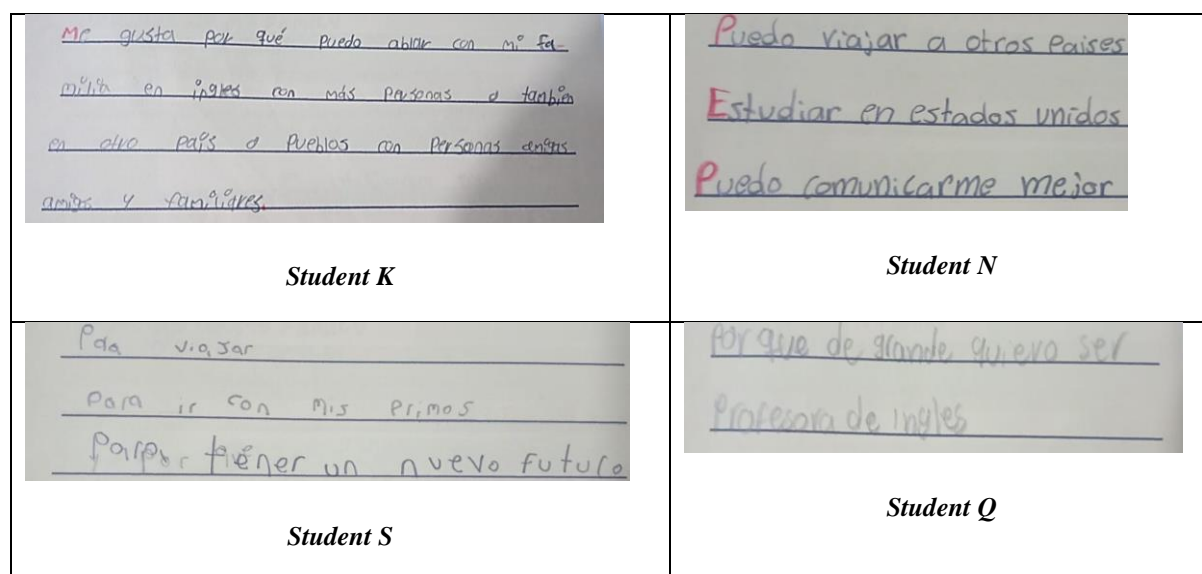 Me gusta por qué puedo ablar con mi fa-
milia en ingles con más personas o tanbien
en otro país o Pueblos con Personas
amigos y familiares.
Student K
Puedo viajar a otros Paises
Estudiar en estados unidos
Puedo comunicarme mejor
Student N
viajar
Para ir con mis Primos
tener un nuevo futuro
Student S
Por que de grande quiero ser
Profesora de ingles
Student Q